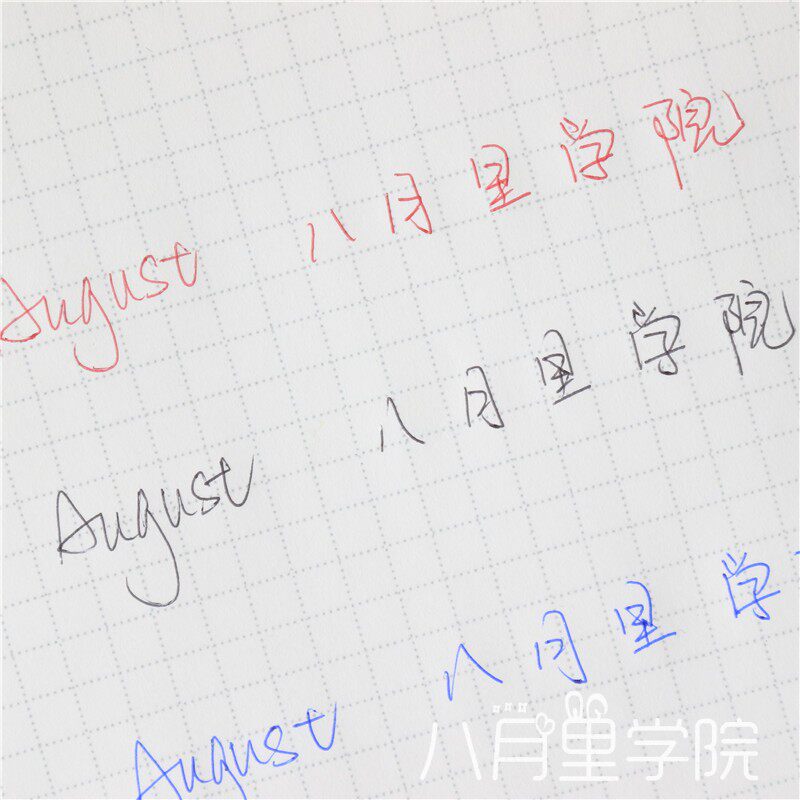 August 八月里学院
August 八月里学院
August 八月里学
八月里学院